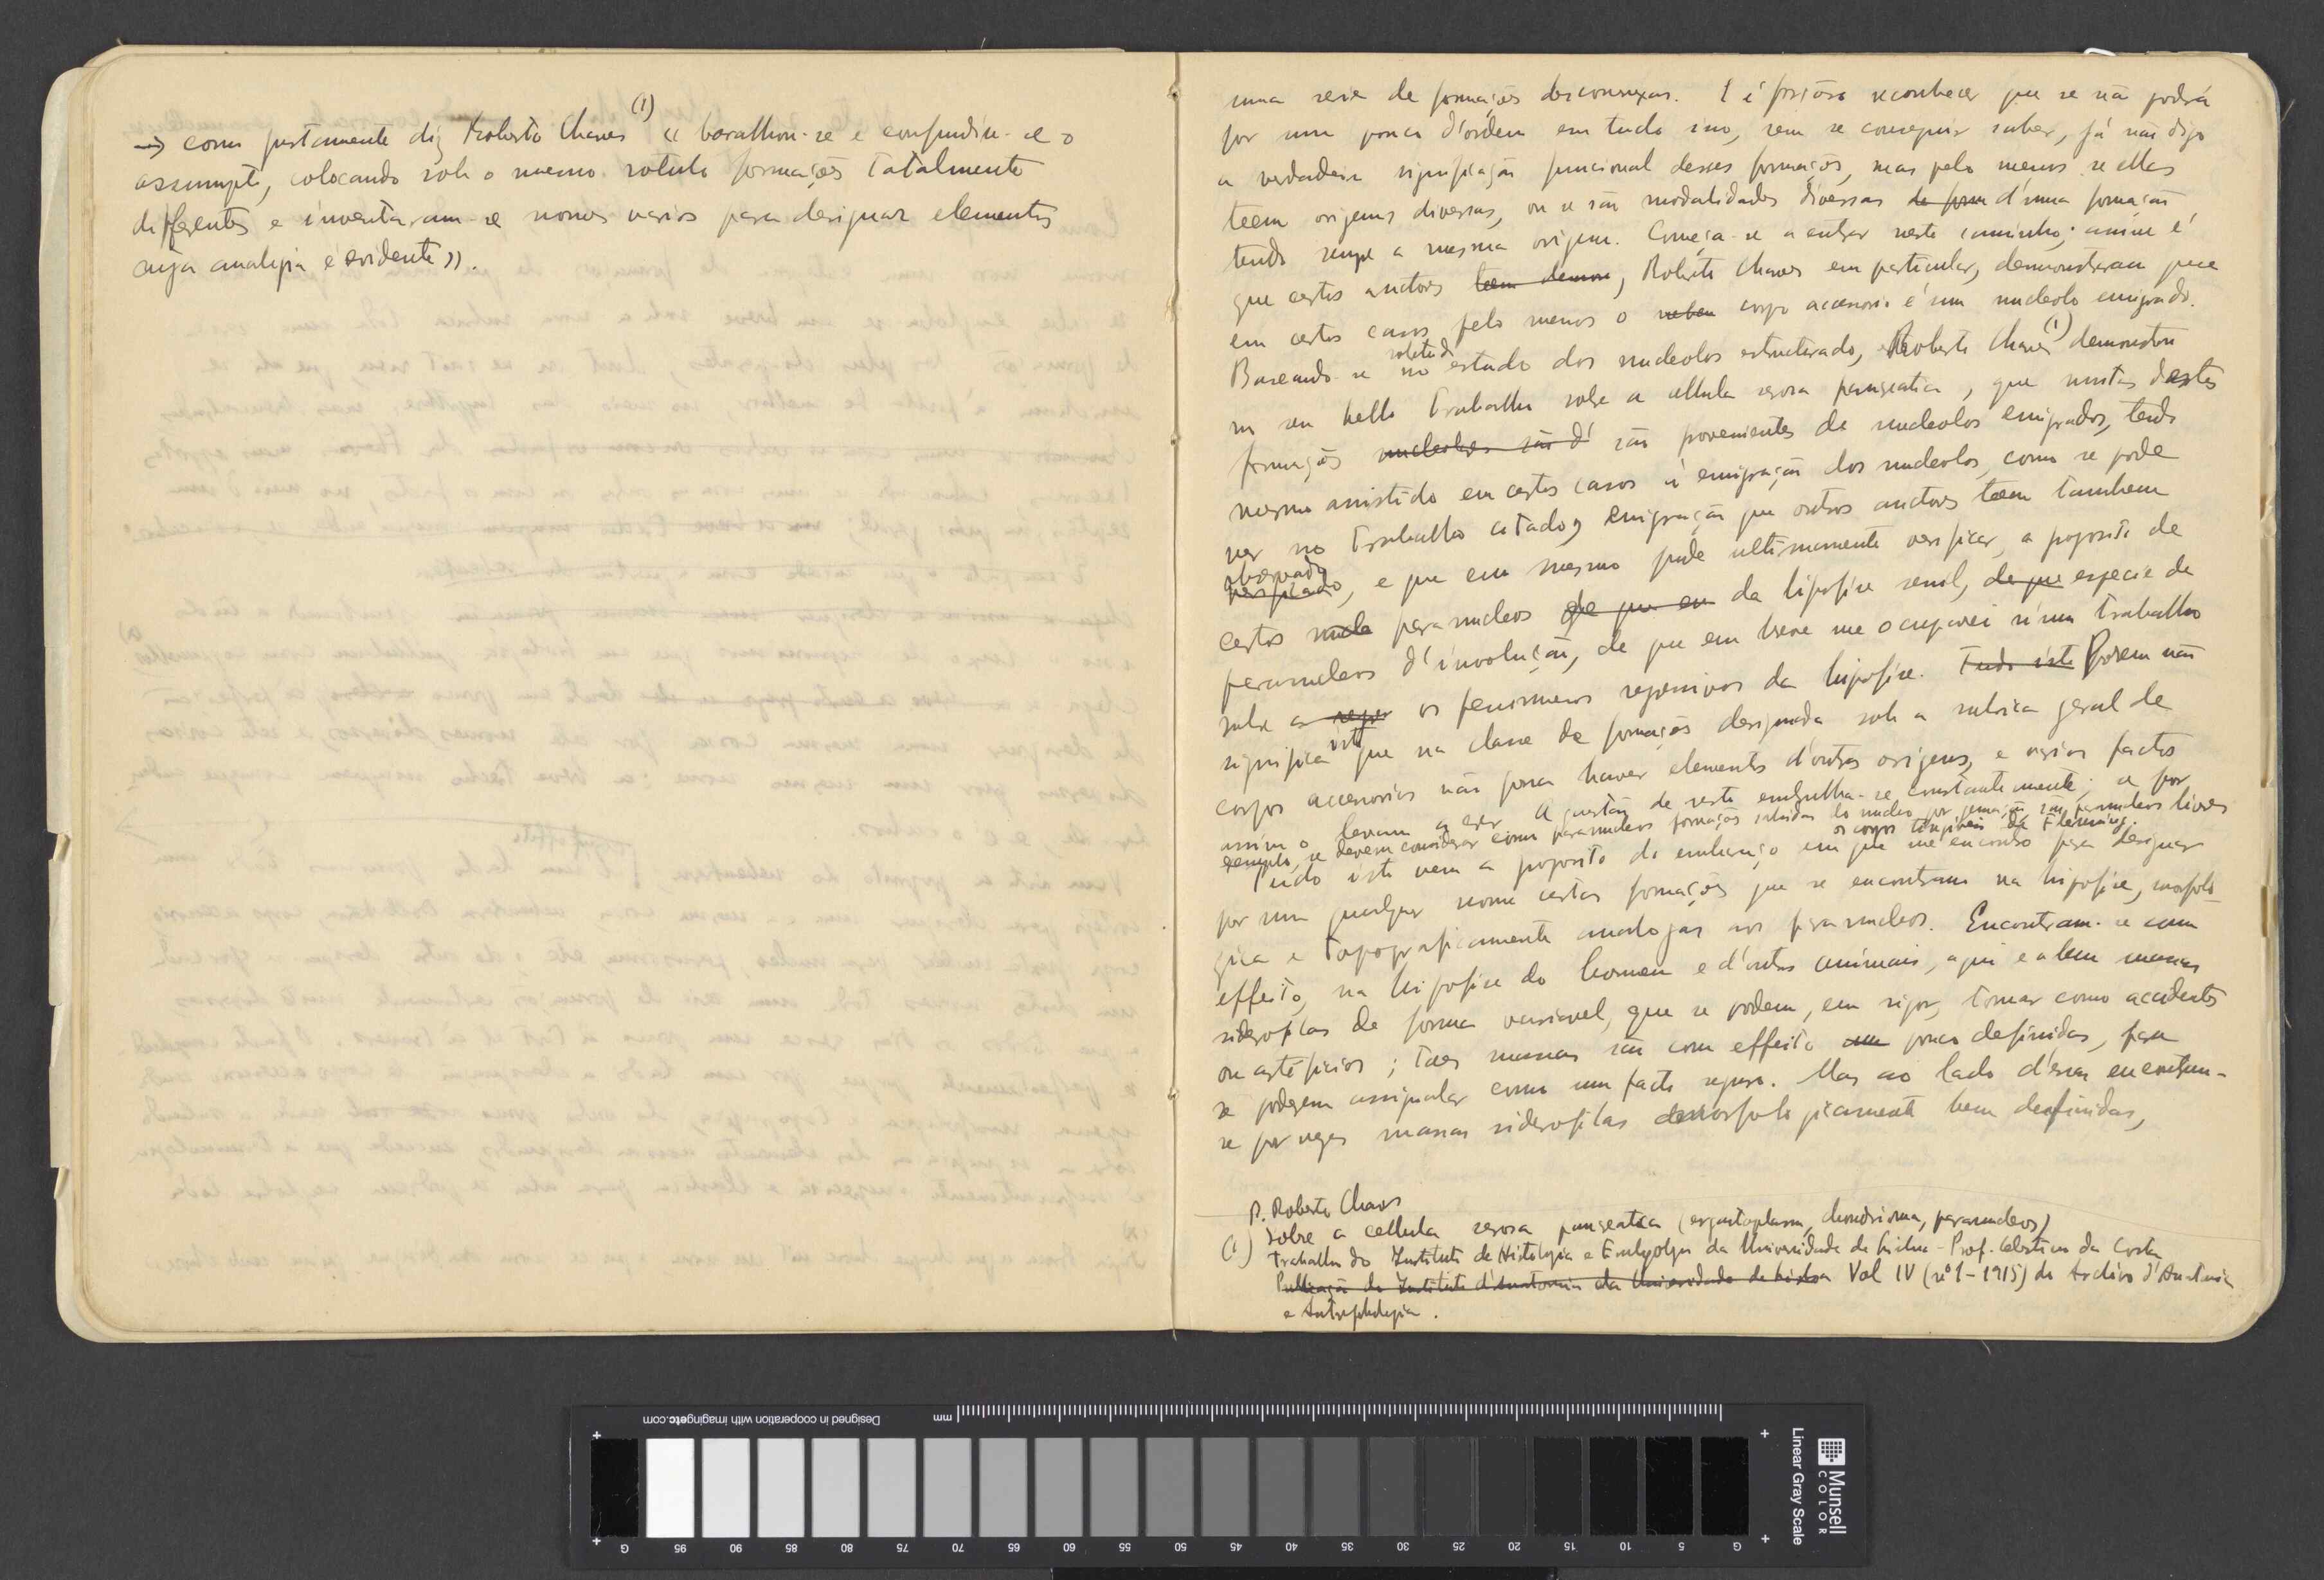 (1)
→ como justamente diz Roberto Chaves « baralhou-se e confundiu-se o
assumpto, colocando sob o mesmo rotulo formações totalmente
differentes e inventaram-se nomes varios para designar elementos
cuja analogia é evidente ».
uma serie de formações desconnexas. E é forçoso reconhecer que se não poderá
pôr um pouco d'ordem em tudo isso, sem se conseguir saber, já não digo
a verdadeira significação funcional desses formações, mas pelo menos se ellas
teem origens diversas, ou se são modalidades diversas de form d'uma formação
tendo sempre a mesma origem. Começa-se a entrar neste caminho; assim é
que certos auctores teem demon, Roberto Chaves em particular, demonstraram que
em certos casos pelo menos o corpo accessorio é um nucleolo emigrado.
Baseando-se no estudo dos nucleolos estructurado, Roberto Chaves (1) demonstrou
no seu bello trabalho sobre a cellula serosa pangeatica, que muitas destas
formações nucleolos são d' são provenientes de nucleolos emigrados, tendo
mesmo assistido em certos casos á emigração dos nucleolos, como se pode
ver no trabalho citado, emigração que outros auctores teem tambem
observado
verificado, e que eu mesmo pude ultimamente verificar, a proposito de
certos nucle paranucleos de que eu da hipofise senil, de que especie de
paranucleos d'involução, de que em breve me occuparei n'um trabalho
sobre a regr os fenomenos regressivos da hipofise. Tudo isto Porem não
significa isto que na classe de formações designada sob a rubrica geral de
corpos accessorios não possa haver elementos d'outras origens, e varios factos
assim o levam a crer A questão de resto embrulha-se constantemente; se por
exemplo, se devem considerar como paranucleos formações sahidas do nucleo por gemação são paranucleos livres
os corpos tingiveis de Flemming.
Tudo isto vem a proposito do embaraço em que me encontro para designar
por um qualquer nome certas formações que se encontram na hipofise, morfolo-
gica e topograficamente analogas aos paranucleos. Encontram-se com
effeito, na hipofise do homem e d'outros animais, aqui e alem massas
siderofilas de forma variavel, que se podem, em rigor, tomar como accidentes
ou artificios; taes massas são com effeito um pouco definidas, para
se poderem assignalar como um facto seguro. Mas ao lado d'essas encontram-
se por vezes massas siderofilas morfologicamente bem definidas,
P. Roberto Chaves
(1) Sobre a cellula serosa pangeatica (ergastoplasma, chondrioma, paranucleos)
Trabalho do Instituto de Histologia e Embryologia da Universidade de Lisboa - Prof. Celestino da Costa
Publicação do Instituto d'Anatomia da Universidade de Lisboa Vol IV (nº 1 - 1915) do Archivo d'Anatomia
e Antropologia.
mm
Designed in cooperation with imagingetc.com
G 95 90 85 80 75 70 65 60 55 50 45 40 35 30 25 20 15 10 5 G
Linear Gray Scale
Munsell
COLOR